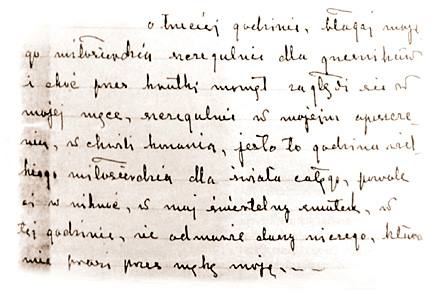 o trzeciej godzinie, błagaj moje
go miłosierdzia szczególnie dla grzeszników
i choć przez krótki moment zagłębiaj się w
mojej męce, szczególnie w mojem opuszcze-
niu, w chwili konania, jest to godzina wiel-
kiego miłosierdzia dla świata całego, pozwolę
ci wniknąć, w mój śmiertelny smutek, w
tej godzinie, nie odmówię duszy niczego, która
mnie prosi przez mękę moją. ——